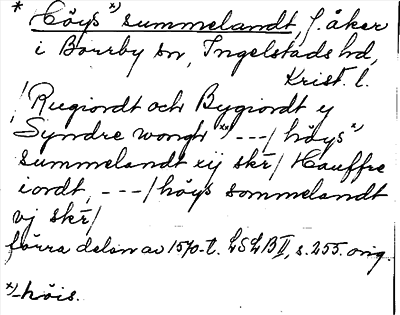 * Höys *) summelandt, f. åker
i Borrby sn, Ingelstads hd,
Krist. l.
/Rugiordt och Bygiordt y
Syndre wongh **) ---/ höys *)
summelandt eij skr/ Hauffre
iordt, ---/ höys sommelandt
vj skr/
förra delen av 1570-t. LSLB II, s. 255. orig.
*) höis.